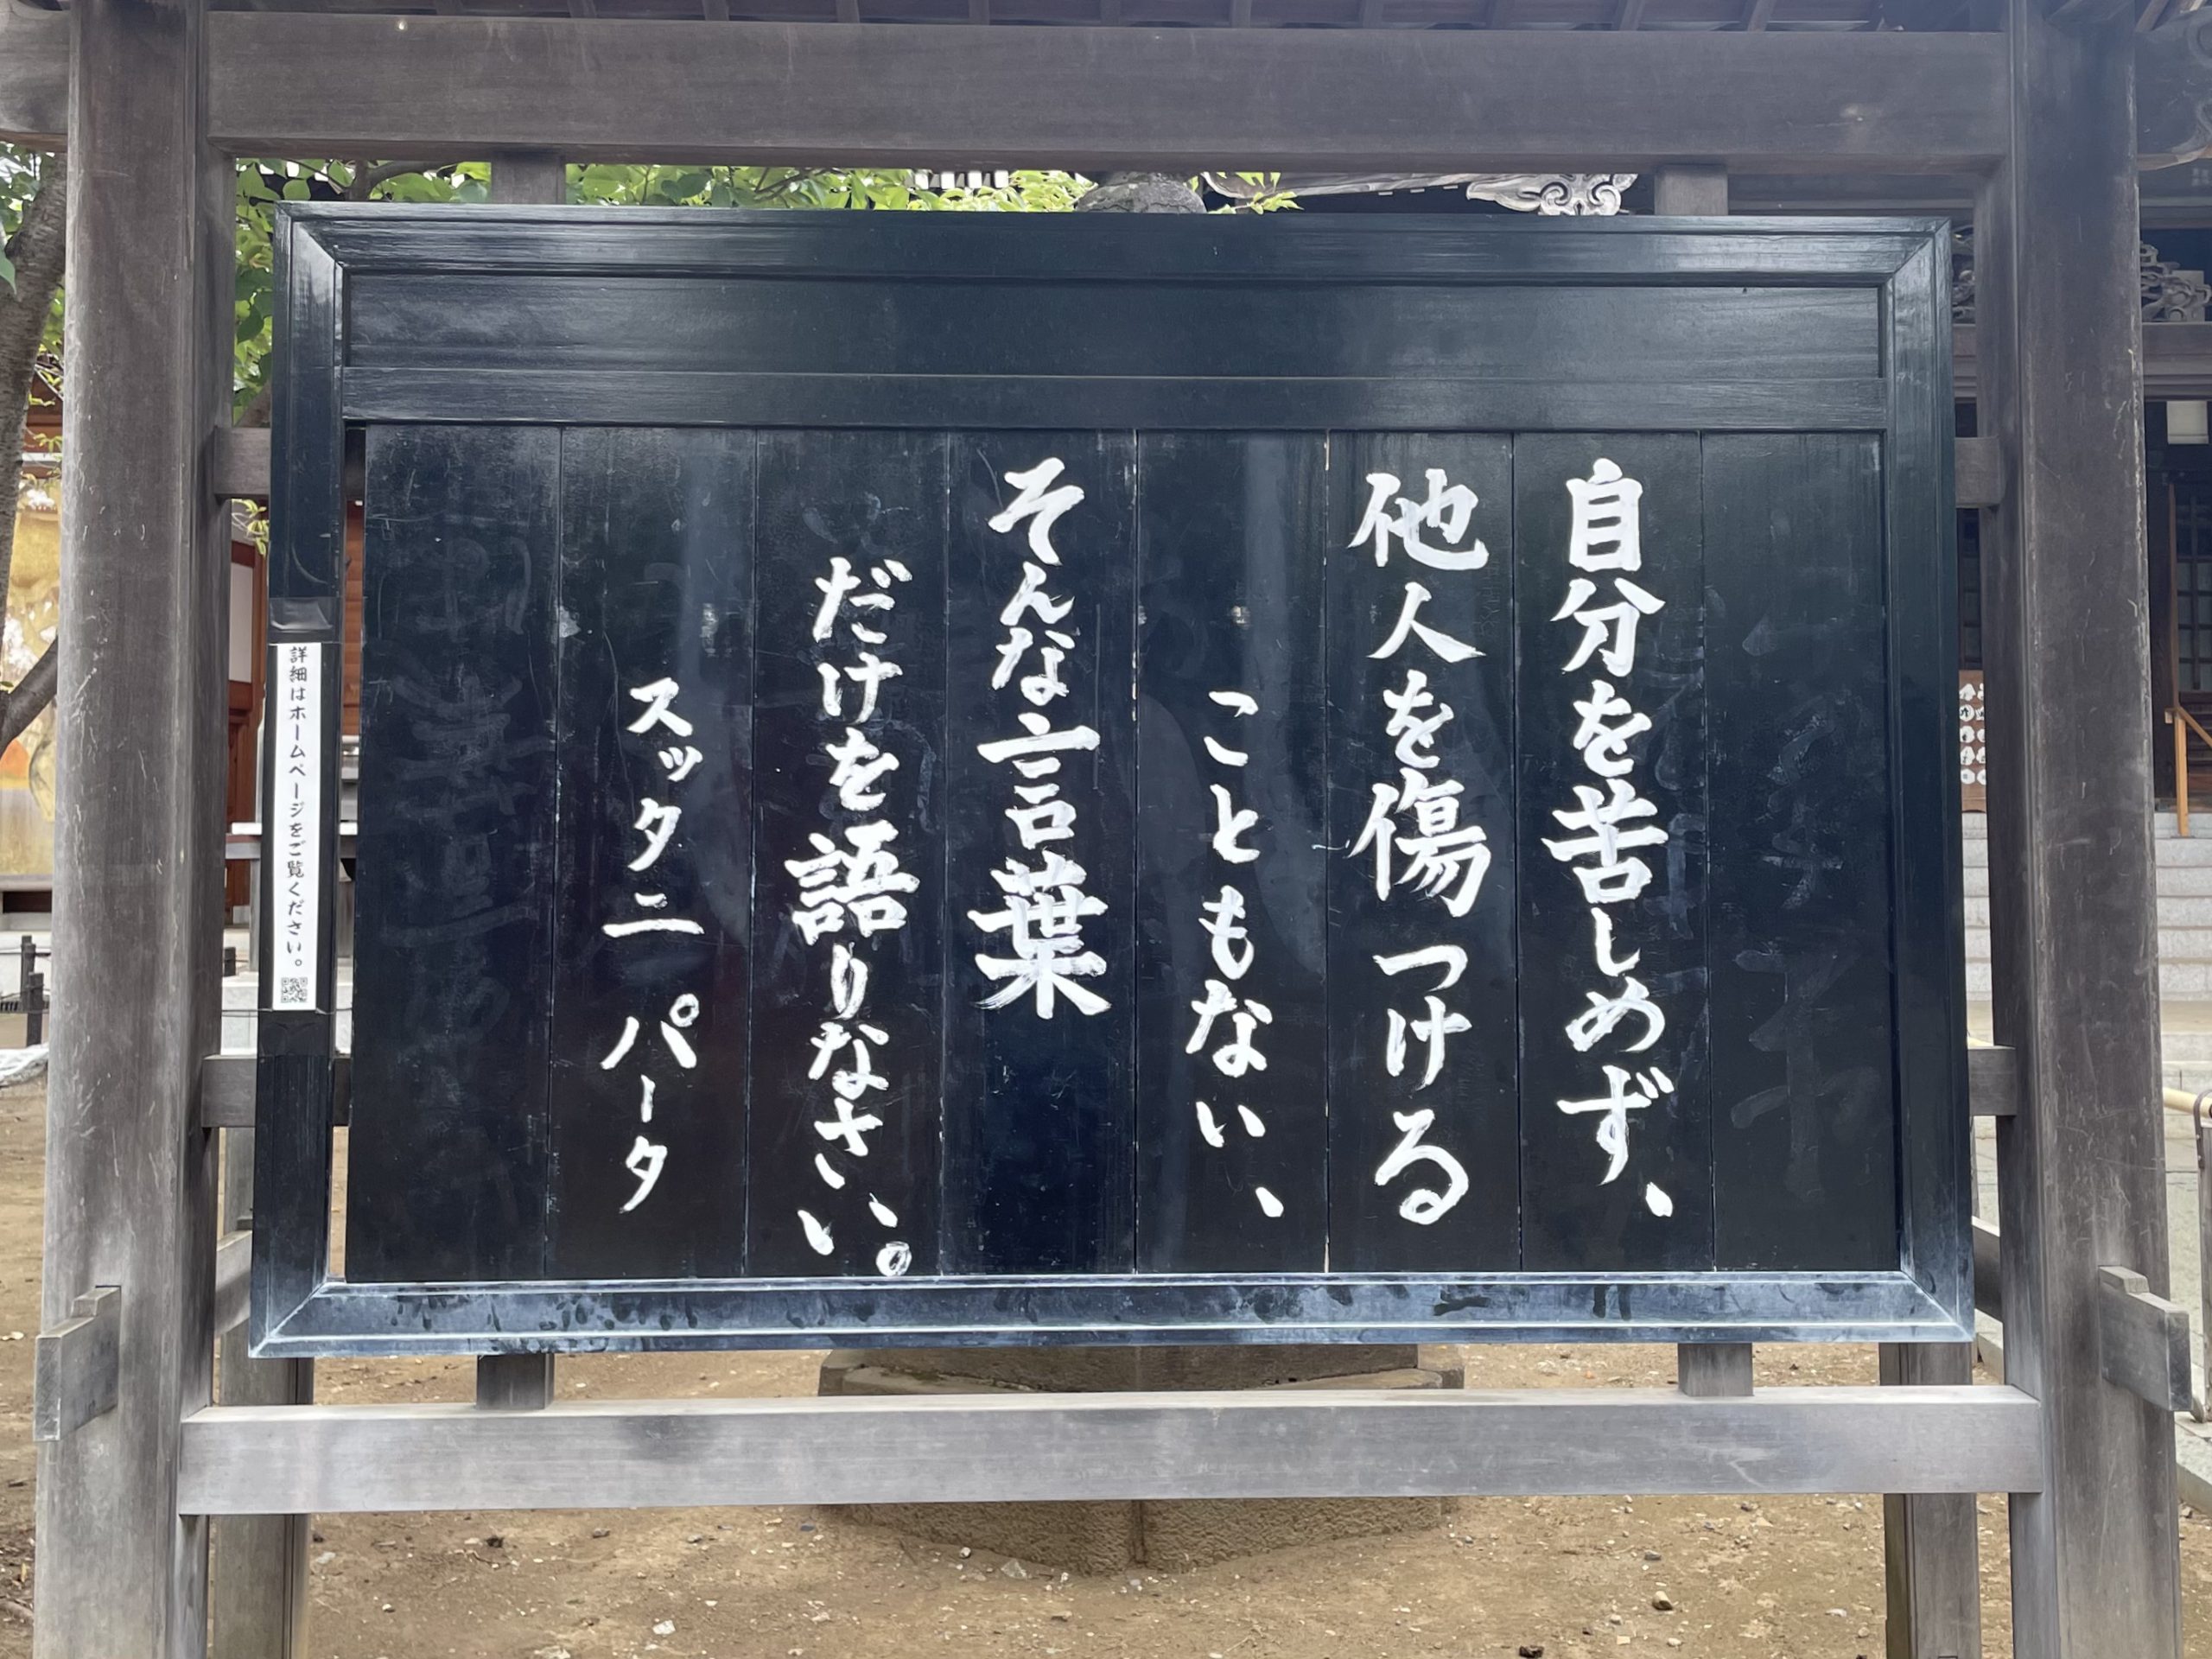 自分を苦しめず、
他人を傷つける
こともない、
そんな言葉
だけを語りなさい。
スッタニパータ
詳細はホームページをご覧ください。